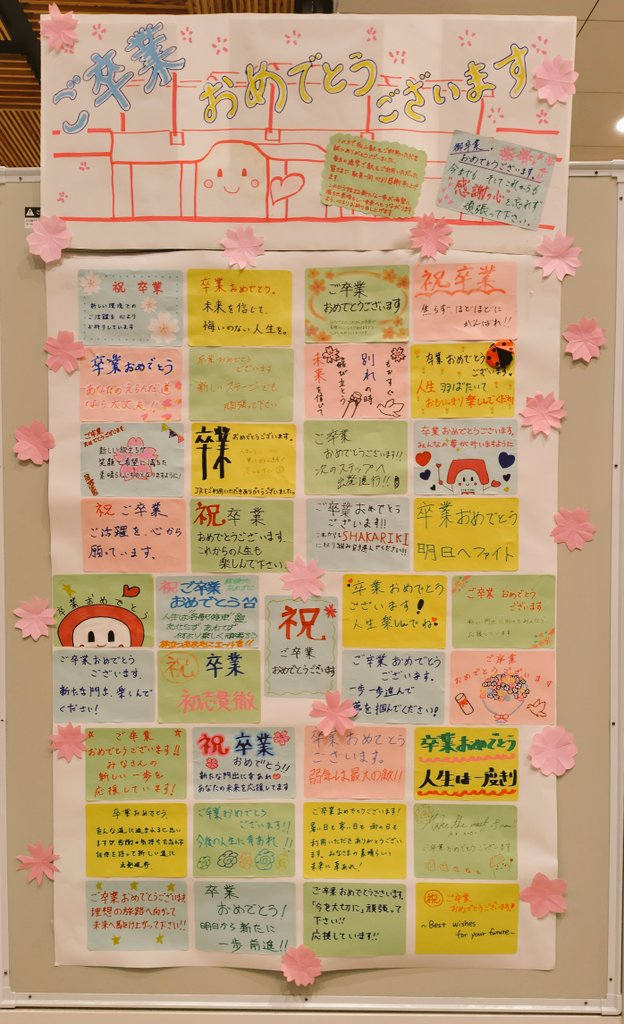 ご卒業
おめでとう
ございます
御卒業、
おめでとうございます。
今までも そしてこれからも
"感謝の心"を忘れず
頑張って下さい。
祝 卒業
新しい環境での
ご活躍を心より
お祈りしています
卒業おめでとう。
未来を信じて、
悔いのない人生を。
ご卒業
おめでとうございます
祝卒業
焦らず ほどほどに
がんばれ!!
卒業おめでとう
あなたのえらんだ道
なら大丈夫!!
卒業おめでとう
ございます
新しいステージでも
頑張って下さい
別れの時
未来を信じて
卒業おめでとう
ございます。
人生 羽ばたいて
おもいっきり楽しんでください
卒業
おめでとうございます。
新しい旅立ちが
笑顔と希望に満ちた
素晴らしいものとなりますように!
卒業
おめでとうございます。
JRをご利用いただきありがとうございました。
ご卒業
おめでとうございます!!
次のステップへ
出発進行!!
卒業おめでとうございます。
みんなの夢が叶いますように
祝 ご卒業
ご活躍を、心から
願っています。
祝 卒業
おめでとうございます。
これからの人生も
楽しんで下さい。
ご卒業おめでとう
ございます!!
これからもSHAKARIKI
卒業おめでとう
明日へファイト
卒業おめでとう
祝 ご卒業
おめでとう
祝
ご卒業
おめでとうございます
卒業おめでとう
ございます!
人生楽しんでね
ご卒業
おめでとうございます
新しい門出
応援しています
ご卒業おめでとう
ございます。
新たな門出、楽しんで
ください!
祝 卒業
初志貫徹
ご卒業おめでとう
ございます。
一歩一歩進んで
夢を掴んでください!
ご卒業
おめでとうございます
ご卒業
おめでとうございます!!
みなさんの
新しい一歩を
応援しています!
祝 卒業
おめでとう!!
新たな門出に幸あれ
あなたの未来を応援してます!
卒業おめでとう
ございます。
弱気は最大の敵!!
卒業おめでとう
人生は一度きり
卒業おめでとう。
ご卒業おめでとう
ございます!!
今後の人生に幸あれ!!
ご卒業おめでとうございます!
暑い日も寒い日も雨の日も
利用いただきありがとうござい
ます。みなさまの素晴らしい
未来に幸あれ!
ご卒業おめでとうございます
ご卒業おめでとうございます
理想の旅路へ向かって
未来へ駆け上がって下さい!!
卒業
おめでとう!
明日から新たに
一歩前進!!
ご卒業おめでとうございます。
「今を大切に」頑張って
下さい!!
応援しています!!
祝 ご卒業
おめでとうございます!
~Best wishes
for your future~